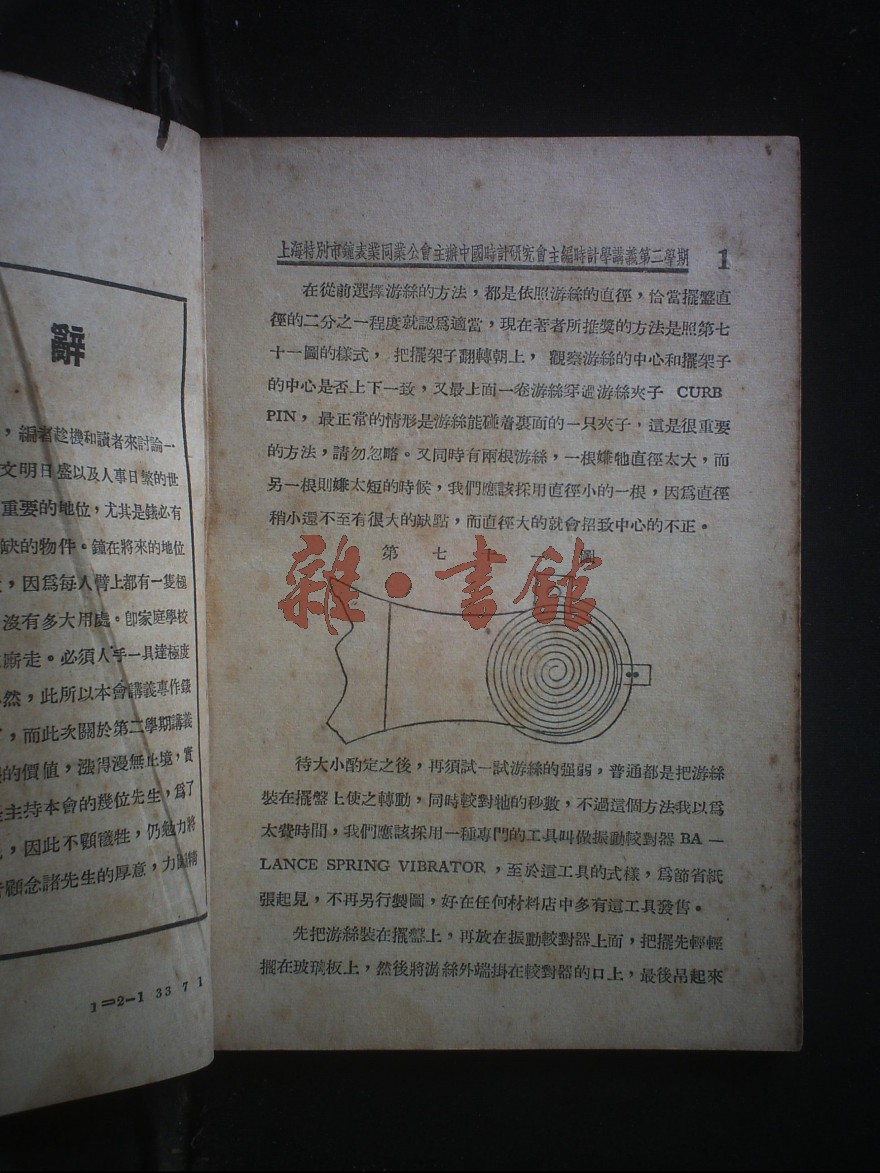 辭
，編者趁機和讀者來討論一
文明日盛以及人事日繁的世
重要的地位，尤其是錶必有
缺的物件。鐘在將來的地位
，因爲每人臂上都有一隻極
沒有多大用處。卽家庭學校
廝走。必須人手一具達極度
然，此所以本會講義專作錶
，而此次關於第二學期講義
的價值，漲得漫無止境，實
主持本會的幾位先生，爲了
，因此不顧犧牲，仍勉力將
顧念諸先生的厚意，力圖精
1=2-1 33 7 1
上海特別市鐘表業同業公會主辦中國時計研究會主編時計學講義第二學期 1
在從前選擇游絲的方法，都是依照游絲的直徑，恰當擺盤直
徑的二分之一程度就認爲適當，現在著者所推獎的方法是照第七
十一圖的樣式，把擺架子翻轉朝上，觀察游絲的中心和擺架子
的中心是否上下一致，又最上面一卷游絲穿過游絲夾子 CURB
PIN，最正常的情形是游絲能碰着裏面的一只夾子，這是很重要
的方法，請勿忽略。又同時有兩根游絲，一根嫌牠直徑太大，而
另一根則嫌太短的時候，我們應該採用直徑小的一根，因爲直徑
稍小還不至有很大的缺點，而直徑大的就會招致中心的不正。
第七十一圖
雜·書館
待大小酌定之後，再須試一試游絲的强弱，普通都是把游絲
裝在擺盤上使之轉動，同時較對牠的秒數，不過這個方法我以爲
太費時間，我們應該採用一種專門的工具叫做振動較對器 BA —
LANCE SPRING VIBRATOR，至於這工具的式樣，爲節省紙
張起見，不再另行製圖，好在任何材料店中多有這工具發售。
先把游絲裝在擺盤上，再放在振動較對器上面，把擺先輕輕
擺在玻璃板上，然後將游絲外端掛在較對器的口上，最後吊起來